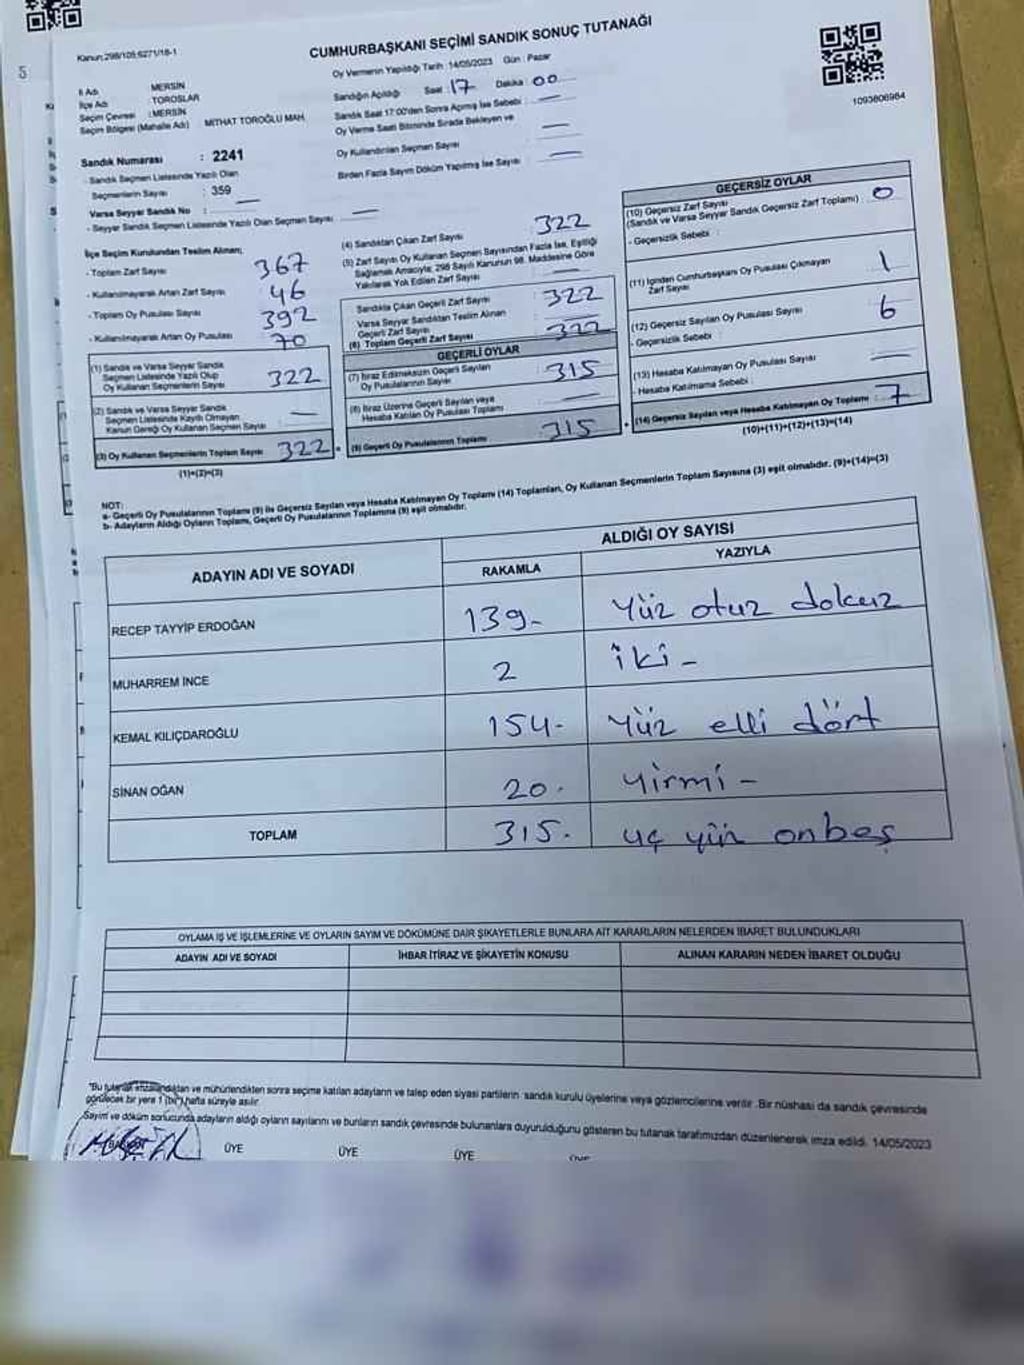 5
Kanun:298/105;6271/18-1
CUMHURBAŞKANI SEÇİMİ SANDIK SONUÇ TUTANAĞI
Oy Vermenin Yapıldığı Tarih :14/05/2023 Gün : Pazar
İl Adı MERSİN
İlçe Adı TOROSLAR
Seçim Çevresi : MERSİN
Seçim Bölgesi (Mahalle Adı) MİTHAT TOROĞLU MAH.
Sandığın Açıldığı Saat : 17 Dakika : 00
Sandık Saat 17:00'den Sonra Açımış İse Sebebi : —
Oy Verme Saati Bitiminde Sırada Bekleyen ve
Oy Kullandırılan Seçmen Sayısı —
Birden Fazla Sayım Döküm Yapılmış İse Sayısı —
1093806984
Sandık Numarası : 2241
- Sandık Seçmen Listesinde Yazılı Olan
Seçmenlerin Sayısı : 359
Varsa Seyyar Sandık No : —
- Seyyar Sandık Seçmen Listesinde Yazılı Olan Seçmen Sayısı —
İlçe Seçim Kurulundan Teslim Alınan;
- Toplam Zarf Sayısı 367
- Kullanılmayarak Artan Zarf Sayısı 46
- Toplam Oy Pusulası Sayısı 392
- Kullanılmayarak Artan Oy Pusulası 70
(1) Sandık ve Varsa Seyyar Sandık
Seçmen Listesinde Yazılı Olup
Oy Kullanan Seçmenlerin Sayısı 322
(2) Sandık ve Varsa Seyyar Sandık
Seçmen Listesinde Kayıtlı Olmayan
Kanun Gereği Oy Kullanan Seçmen Sayısı —
(3) Oy Kullanan Seçmenlerin Toplam Sayısı 322
(1)+(2)=(3)
(4) Sandıktan Çıkan Zarf Sayısı 322
(5) Zarf Sayısı Oy Kullanan Seçmen Sayısından Fazla İse, Eşitliği
Sağlamak Amacıyla; 298 Sayılı Kanunun 98. Maddesine Göre
Yakılarak Yok Edilen Zarf Sayısı —
Sandıkta Çıkan Geçerli Zarf Sayısı 322
Varsa Seyyar Sandıktan Teslim Alınan
Geçerli Zarf Sayısı —
(6) Toplam Geçerli Zarf Sayısı 322
GEÇERLİ OYLAR
(7) İtiraz Edilmeksizin Geçerli Sayılan
Oy Pusulalarının Sayısı 315
(8) İtiraz Üzerine Geçerli Sayılan veya
Hesaba Katılan Oy Pusulası Toplamı —
(9) Geçerli Oy Pusulalarının Toplamı 315
GEÇERSİZ OYLAR
(10) Geçersiz Zarf Sayısı
(Sandık ve Varsa Seyyar Sandık Geçersiz Zarf Toplamı) : 0
- Geçersizlik Sebebi :
(11) İçinden Cumhurbaşkanı Oy Pusulası Çıkmayan
Zarf Sayısı 1
(12) Geçersiz Sayılan Oy Pusulası Sayısı 6
- Geçersizlik Sebebi :
(13) Hesaba Katılmayan Oy Pusulası Sayısı —
- Hesaba Katılmama Sebebi :
(14) Geçersiz Sayılan veya Hesaba Katılmayan Oy Toplamı : 7
(10)+(11)+(12)+(13)=(14)
NOT:
a- Geçerli Oy Pusulalarının Toplamı (9) ile Geçersiz Sayılan veya Hesaba Katılmayan Oy Toplamı (14) Toplamları, Oy Kullanan Seçmenlerin Toplam Sayısına (3) eşit olmalıdır. (9)+(14)=(3)
b- Adayların Aldığı Oyların Toplamı, Geçerli Oy Pusulalarının Toplamına (9) eşit olmalıdır.
ADAYIN ADI VE SOYADI
ALDIĞI OY SAYISI
RAKAMLA YAZIYLA
RECEP TAYYİP ERDOĞAN 139- Yüz otuz dokuz
MUHARREM İNCE 2 iki -
KEMAL KILIÇDAROĞLU 154- Yüz elli dört
SİNAN OĞAN 20. yirmi -
TOPLAM 315. üç yüz onbeş
OYLAMA İŞ VE İŞLEMLERİNE VE OYLARIN SAYIM VE DÖKÜMÜNE DAİR ŞİKAYETLERLE BUNLARA AİT KARARLARIN NELERDEN İBARET BULUNDUKLARI
ADAYIN ADI VE SOYADI İHBAR İTİRAZ VE ŞİKAYETİN KONUSU ALINAN KARARIN NEDEN İBARET OLDUĞU
"Bu tutanak imzalandıktan ve mühürlendikten sonra seçime katılan adayların ve talep eden siyasi partilerin sandık kurulu üyelerine veya gözlemcilerine verilir .Bir nüshası da sandık çevresinde
görülecek bir yere 1 (bir) hafta süreyle asılır.
Sayım ve döküm sonucunda adayların aldığı oyların sayılarını ve bunların sandık çevresinde bulunanlara duyurulduğunu gösteren bu tutanak tarafımızdan düzenlenerek imza edildi. 14/05/2023
ÜYE ÜYE ÜYE